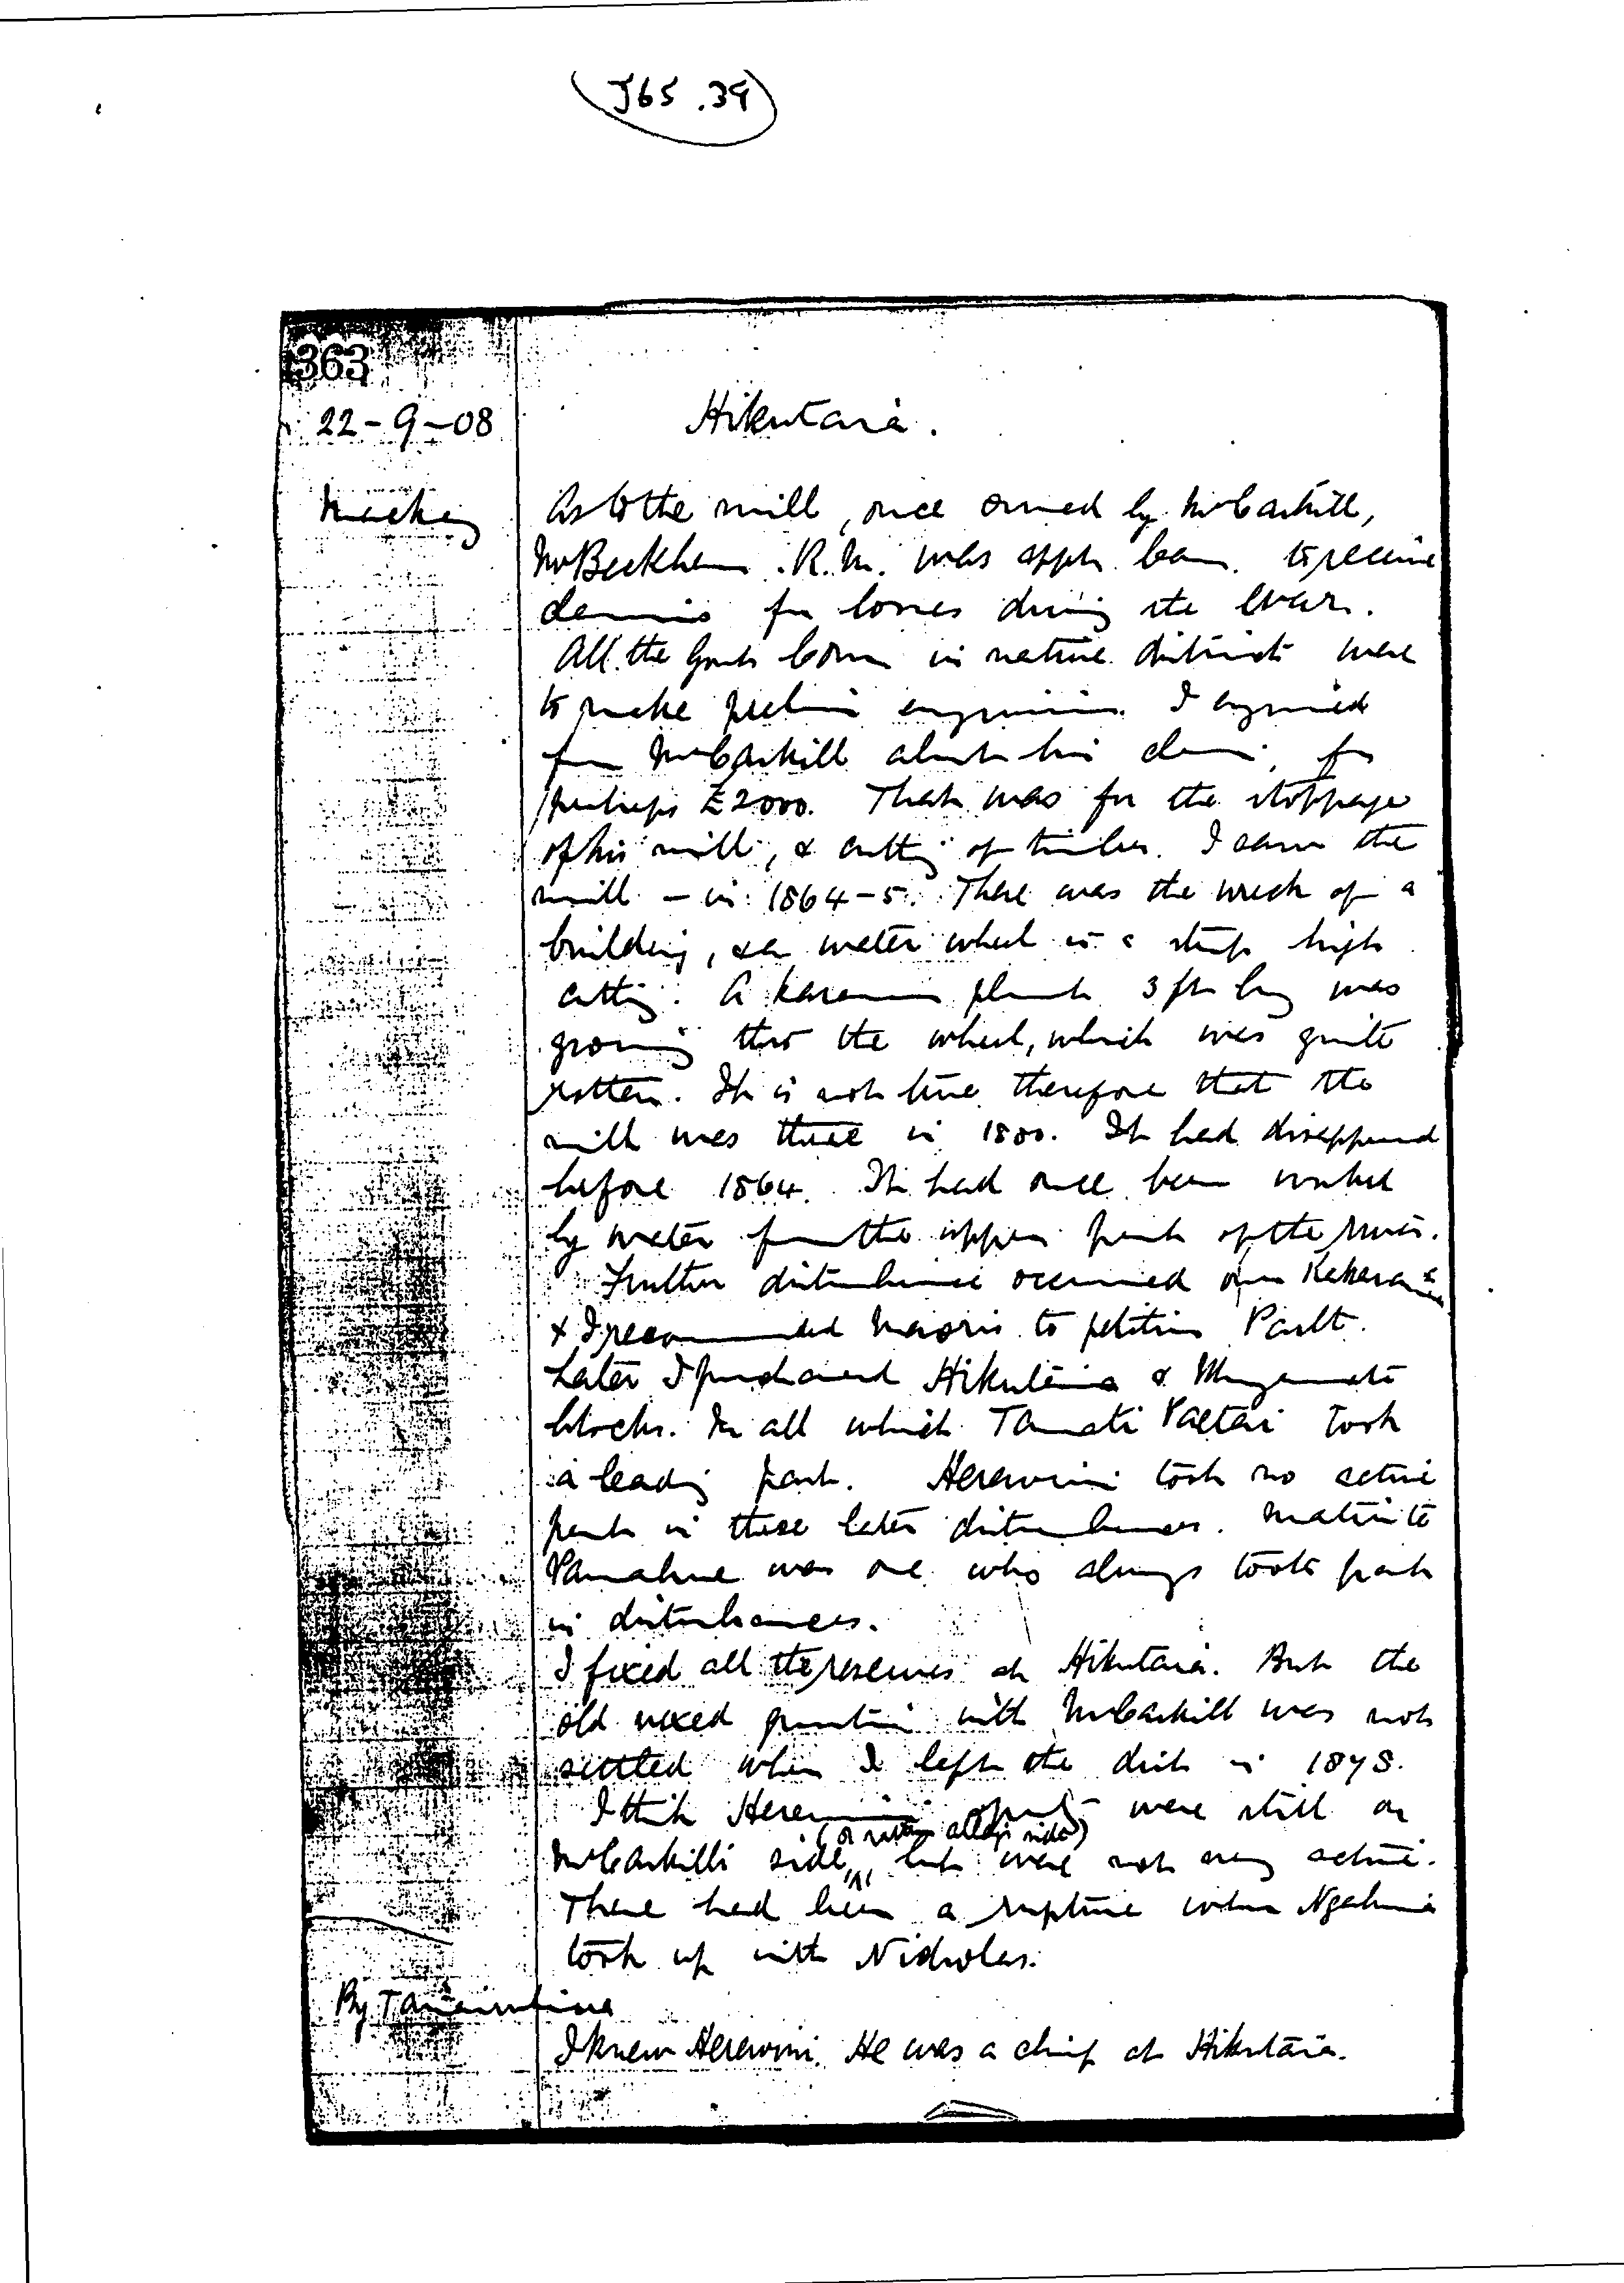 J65.39
363
22-9-08
Hikutaia.
Mackay
As to the mill, once owned by McCaskill,
Mr Beckham R.M. was apptd. to receive
claims for losses during the war.
All the Govt. in native districts were
to make prelim. I
from McCaskill about his claim, for
perhaps £2000. That was for the stoppage
of his mill, & cutting of timber. I saw the
mill - in 1864-5. There was the wreck of a
building, & a water wheel in a steep high
cutting. A karamu plant 3 ft long was
growing thro the wheel, which was quite
rotten. It is not true therefore that the
mill was there in 1800. It had disappeared
before 1864. It had once been worked
by water from the upper part of the river.
Further disturbance occurred over
& I recommended Maoris to petition Parlt.
Later I purchased Hikutaia & Whangamata
blocks. In all which Tamati Paetai took
a leading part. Herewini took no active
part in these later disturbances. Matiu te
was one who always took part
in disturbances.
I fixed all the reserves at Hikutaia. But the
old vexed question with McCaskill was not
settled when I left the dist. in
I think Herewini were still on
(or rather side)
McCaskill's side, but were not very active.
There had been a rupture when
took up with Nicholas.
By
I knew Herewini. He was a chief at Hikutaia.